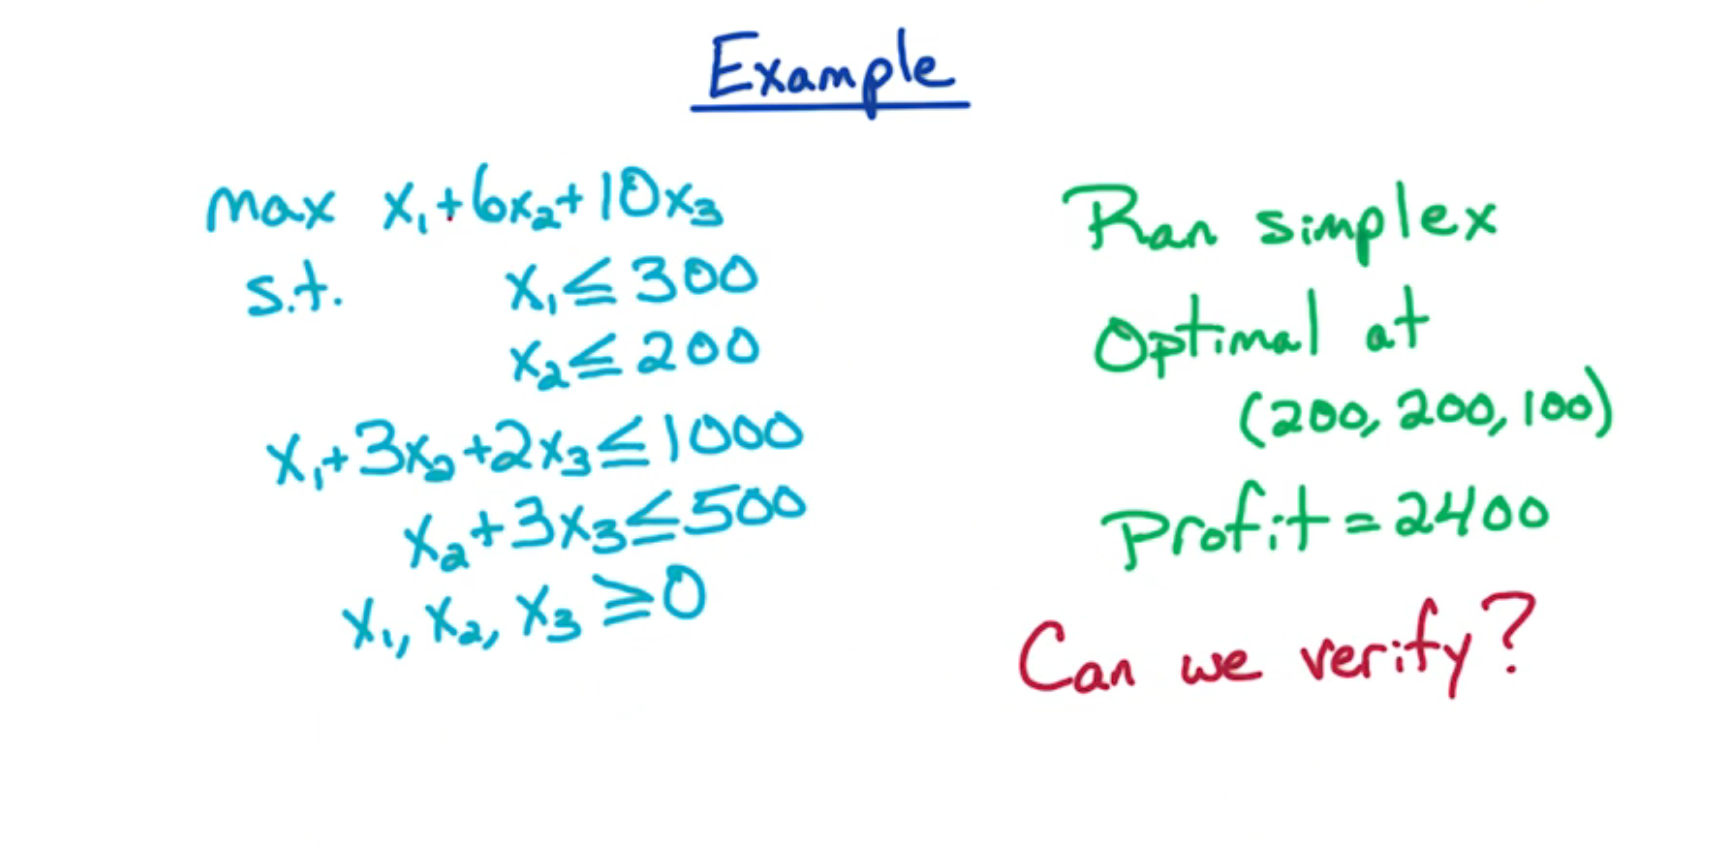 Example
max x₁+6x₂+10x₃
s.t. x₁≤300
x₂≤200
x₁+3x₂+2x₃≤1000
x₂+3x₃≤500
x₁, x₂, x₃ ≥0
Ran simplex
Optimal at
(200, 200, 100)
Profit=2400
Can we verify?